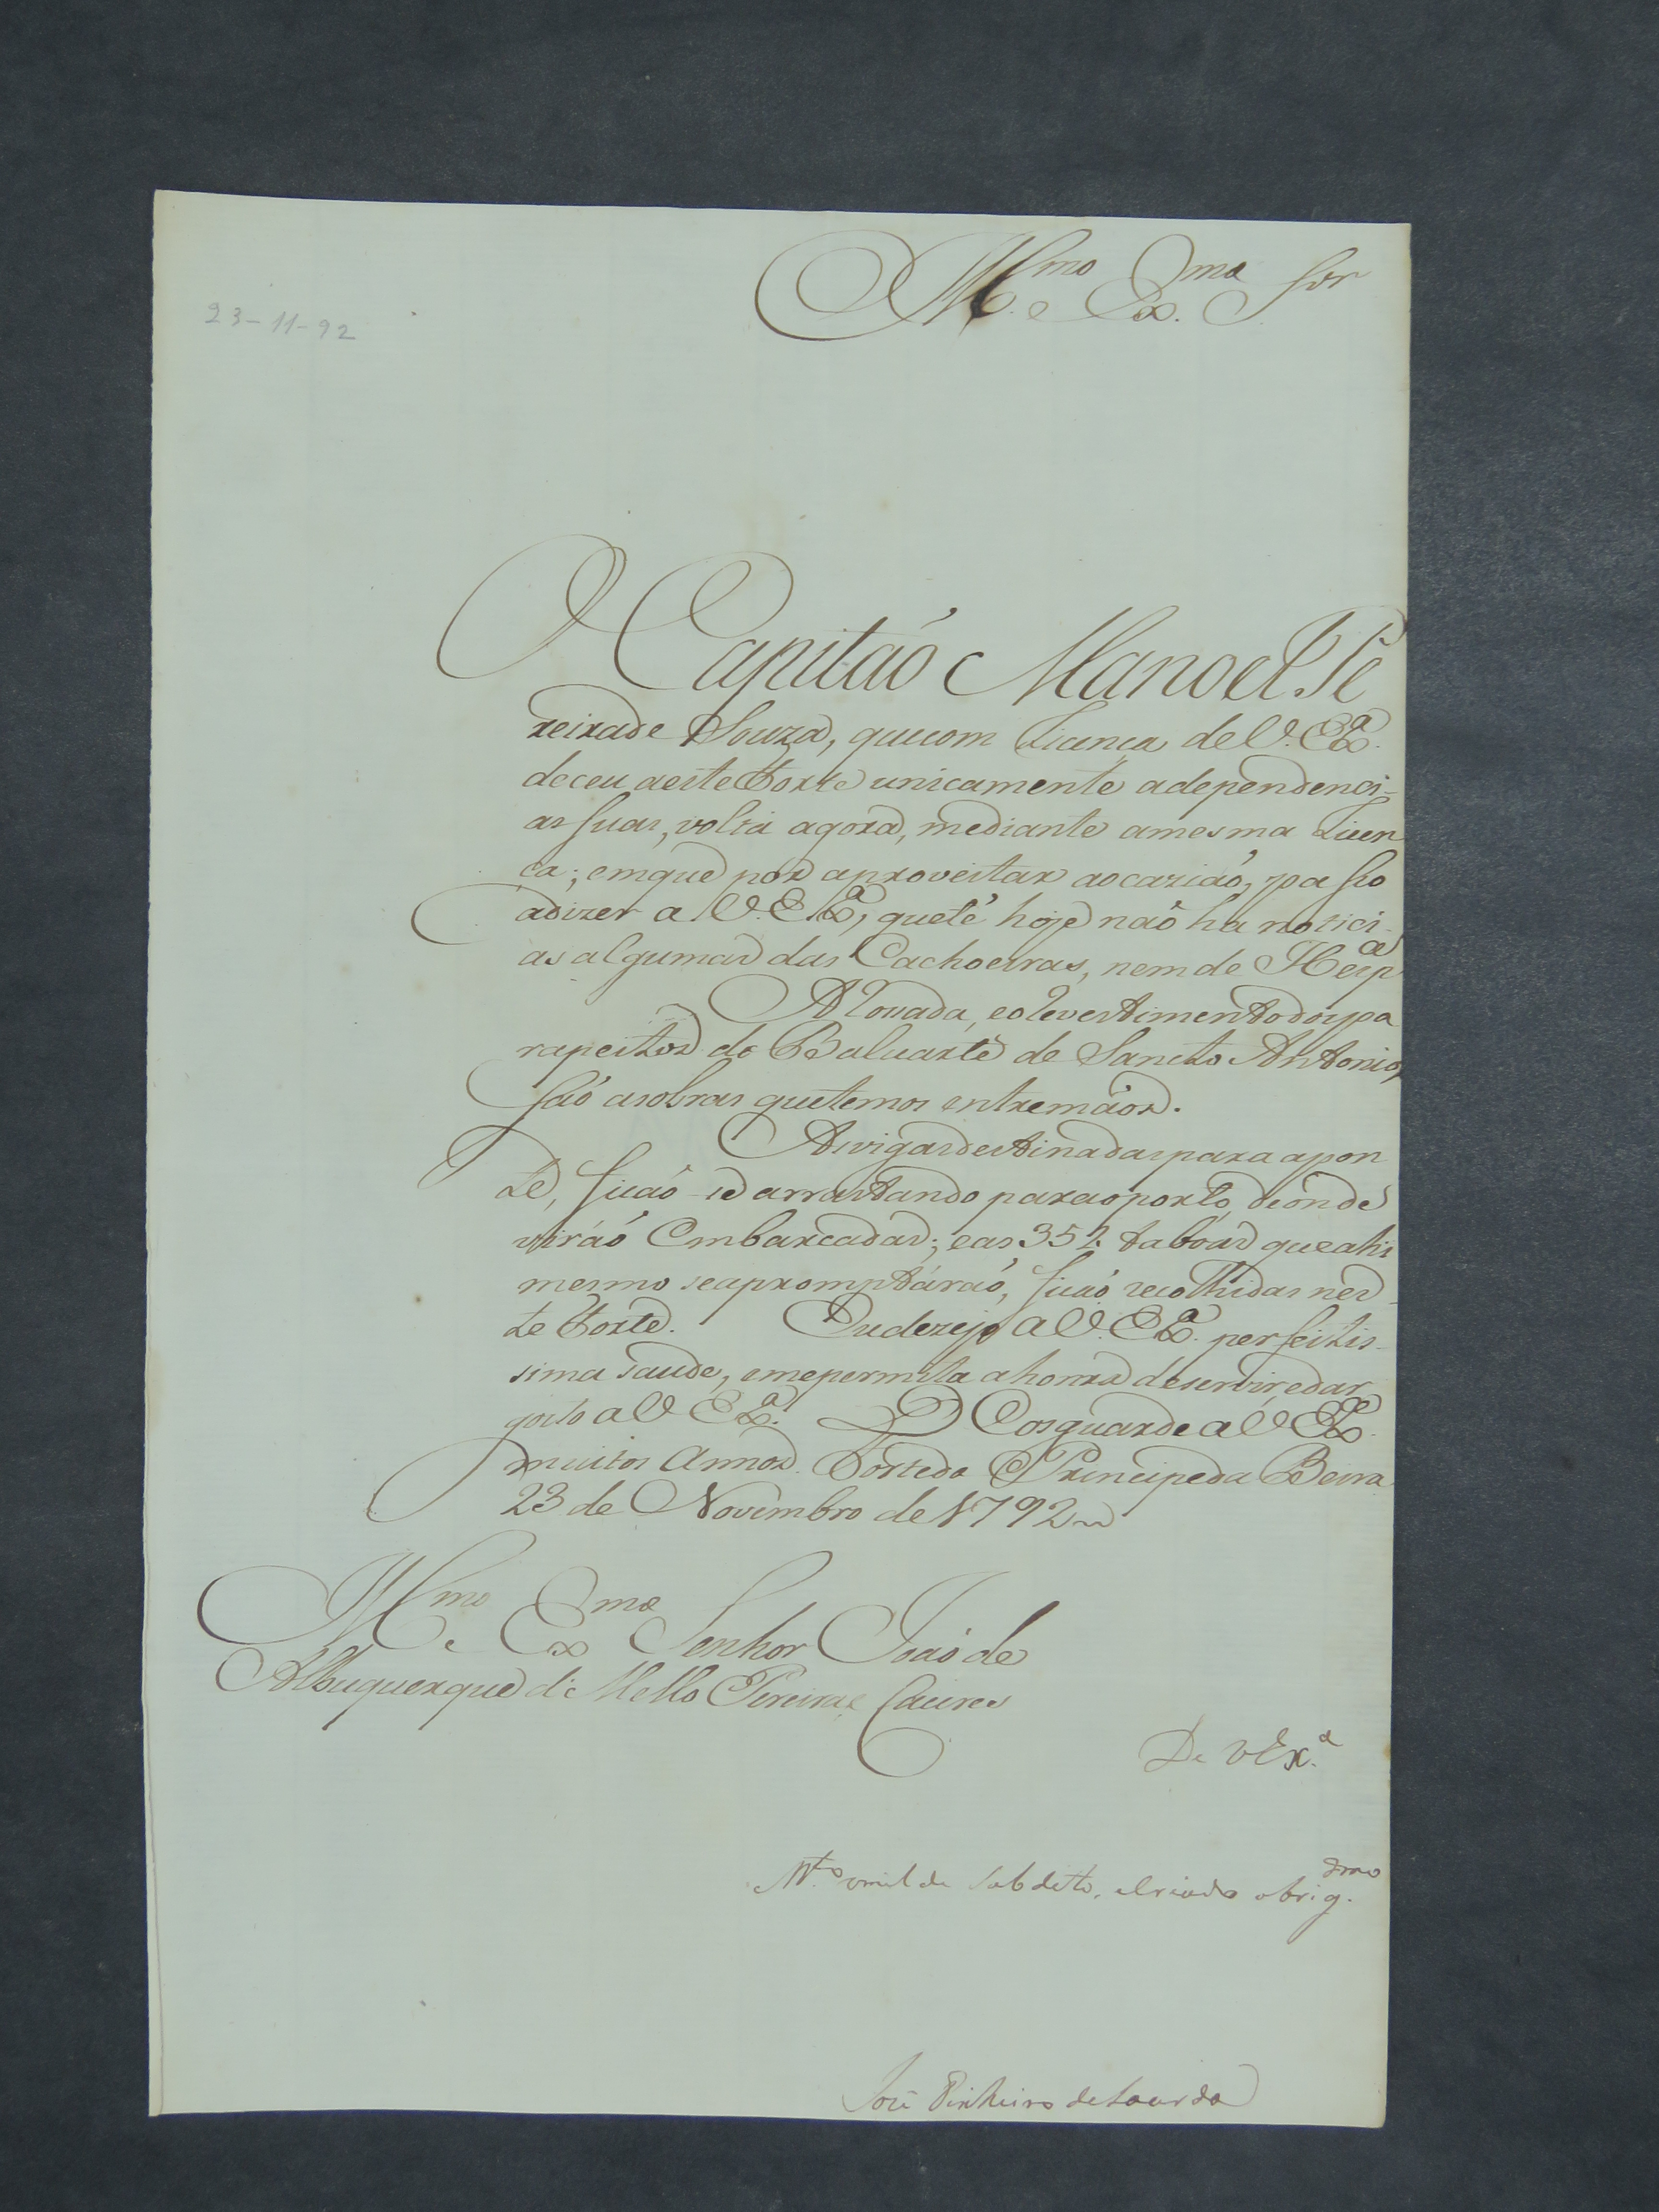 23-11-92
Ill.mo e Ex.mo Snr
O Capitaõ Manoel Pe
reira de Souza, que com Licença de V. Ex.ª
deceu a este Forte unicamente a dependenci-
as suas, volta agora, mediante a mesma Licen
ça; em que por aproveitar a ocaziaõ, passo
a dizer a V. Ex.ª, que té hoje naõ ha notici-
as algumas das Cachoeiras, nem de Hesp.ª
A Touada, e o levestimento dos pa
rapeitos do Baluarte de Sancto Antonio,
saõ as obras que temos entre mãos.
As vigas destinadas para a pon
te, ficaõ se arrastando para o porto, de onde
viráõ Embarcadas; e as 352 taboas que ahi
mesmo se apromptáraõ, ficaõ recolhidas nes-
te Forte. Eu dezejo a V. Ex.ª perfeitis-
sima saude, e me permita a honra de servir, e dar
gosto a V Ex.ª. Deos guarde a V Ex.ª
muitos annos. Forte do Principe da Beira
23 de Novembro de 1792
Ill.mo e Ex.mo Senhor Joaõ de
Albuquerque de Mello Pereira e Caceres
De V Ex.ª
M.to umilde Subdito, e Criado obrig.dmo
José Pinheiro de Lacerda